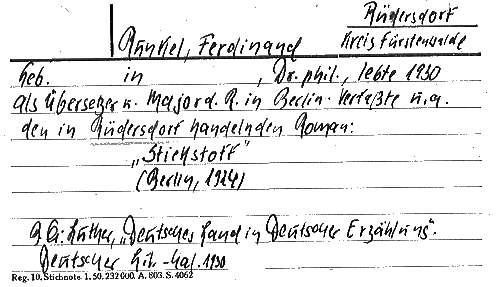 Rüdersdorf
Kreis Fürstenwalde
Runkel, Ferdinand
Geb. in , Dr. phil., lebte 1930
als Übersetzer u. Major d. R. in Berlin. Verfaßte u. a.
den in Rüdersdorf handelnden Roman:
„Stickstoff"
(Berlin, 1924)
Luther, „Deutsches Land in Deutscher Erzählung".
Deutscher Lit.-Kal. 1930
Reg. 10. Stichnote. 1. 50. 232000. A. 803. S. 4062